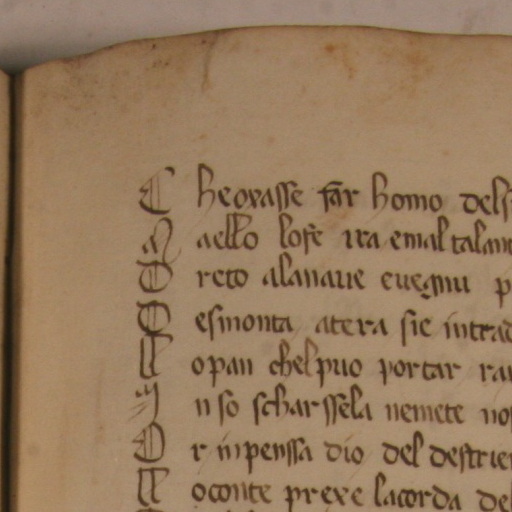 C heoxasse far homo dels
A aello lofe ira emal talant
D reto alanaue euegnu p
D esmonta atera sie intrad
ll opan chelpuo portar ra
I n so scharssela nemete nos
O r inpenssa dio del destrier
ll oconte prexe lacorda del